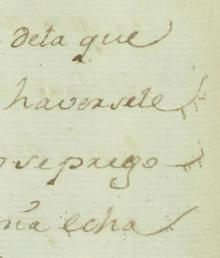 deta que
haversele
seprego
echa